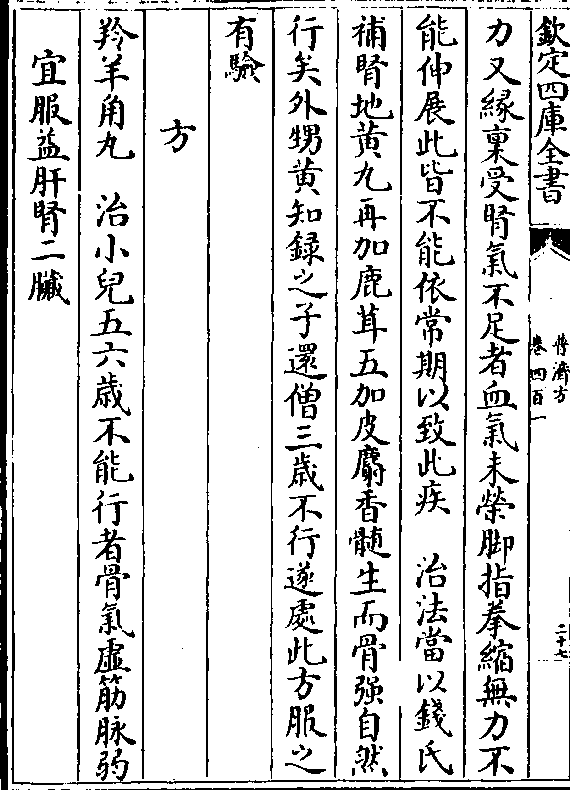 欽定四庫全書
普濟方
卷四百一
二十七
力又緣稟受腎氣不足者血氣未榮脚指拳縮無力不
能伸展此皆不能依常期以致此疾　治法當以錢氏
補腎地黄丸再加鹿茸五加皮麝香髓生而骨强自然
行矣外甥黄知錄之子還僧三歲不行遂處此方服之
有驗
方
羚羊角丸　治小兒五六歲不能行者骨氣虛筋脉弱
宜服益肝腎二臟